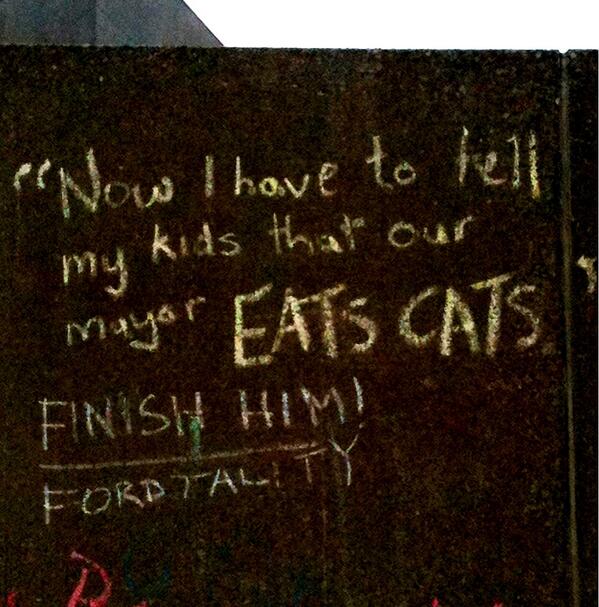 "Now I have to tell
my kids that our
mayor EATS CATS
FINISH HIM!
FORDTALITY